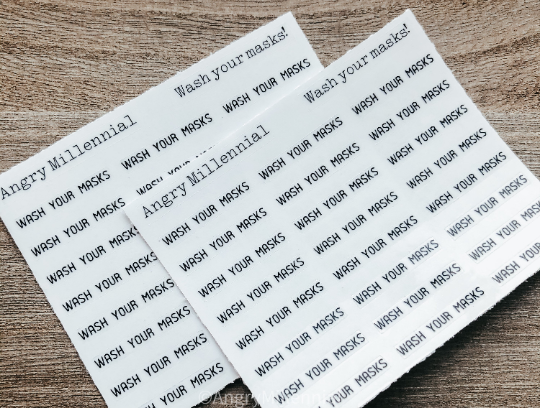 Angry Millennial Wash your masks!
WASH YOUR MASKS WASH YOUR MASKS WASH YOUR MASKS
WASH YOUR MASKS WASH
WASH YOUR MASKS
WASH YOUR MASKS
WASH YOUR MASKS
WASH YOUR MASKS
WASH YOUR MASKS
WASH YOUR MASKS
Angry Millennial Wash your masks!
WASH YOUR MASKS WASH YOUR MASKS WASH YOUR MASKS
WASH YOUR MASKS WASH YOUR MASKS WASH YOUR MASKS
WASH YOUR MASKS WASH YOUR MASKS WASH YOUR MASKS
WASH YOUR MASKS WASH YOUR MASKS WASH YOUR MASKS
WASH YOUR MASKS WASH YOUR MASKS WASH YOUR MASKS
WASH YOUR MASKS WASH YOUR MASKS WASH YOUR
WASH YOUR MASKS WASH YOUR MASKS
YOUR MASKS